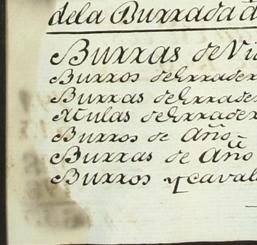 dela Burrada d
Burras de Vi
Burros de Errader
Burras de Errader
Mulas de Errader
Burros de Año
Burras de Año
Burros y caval